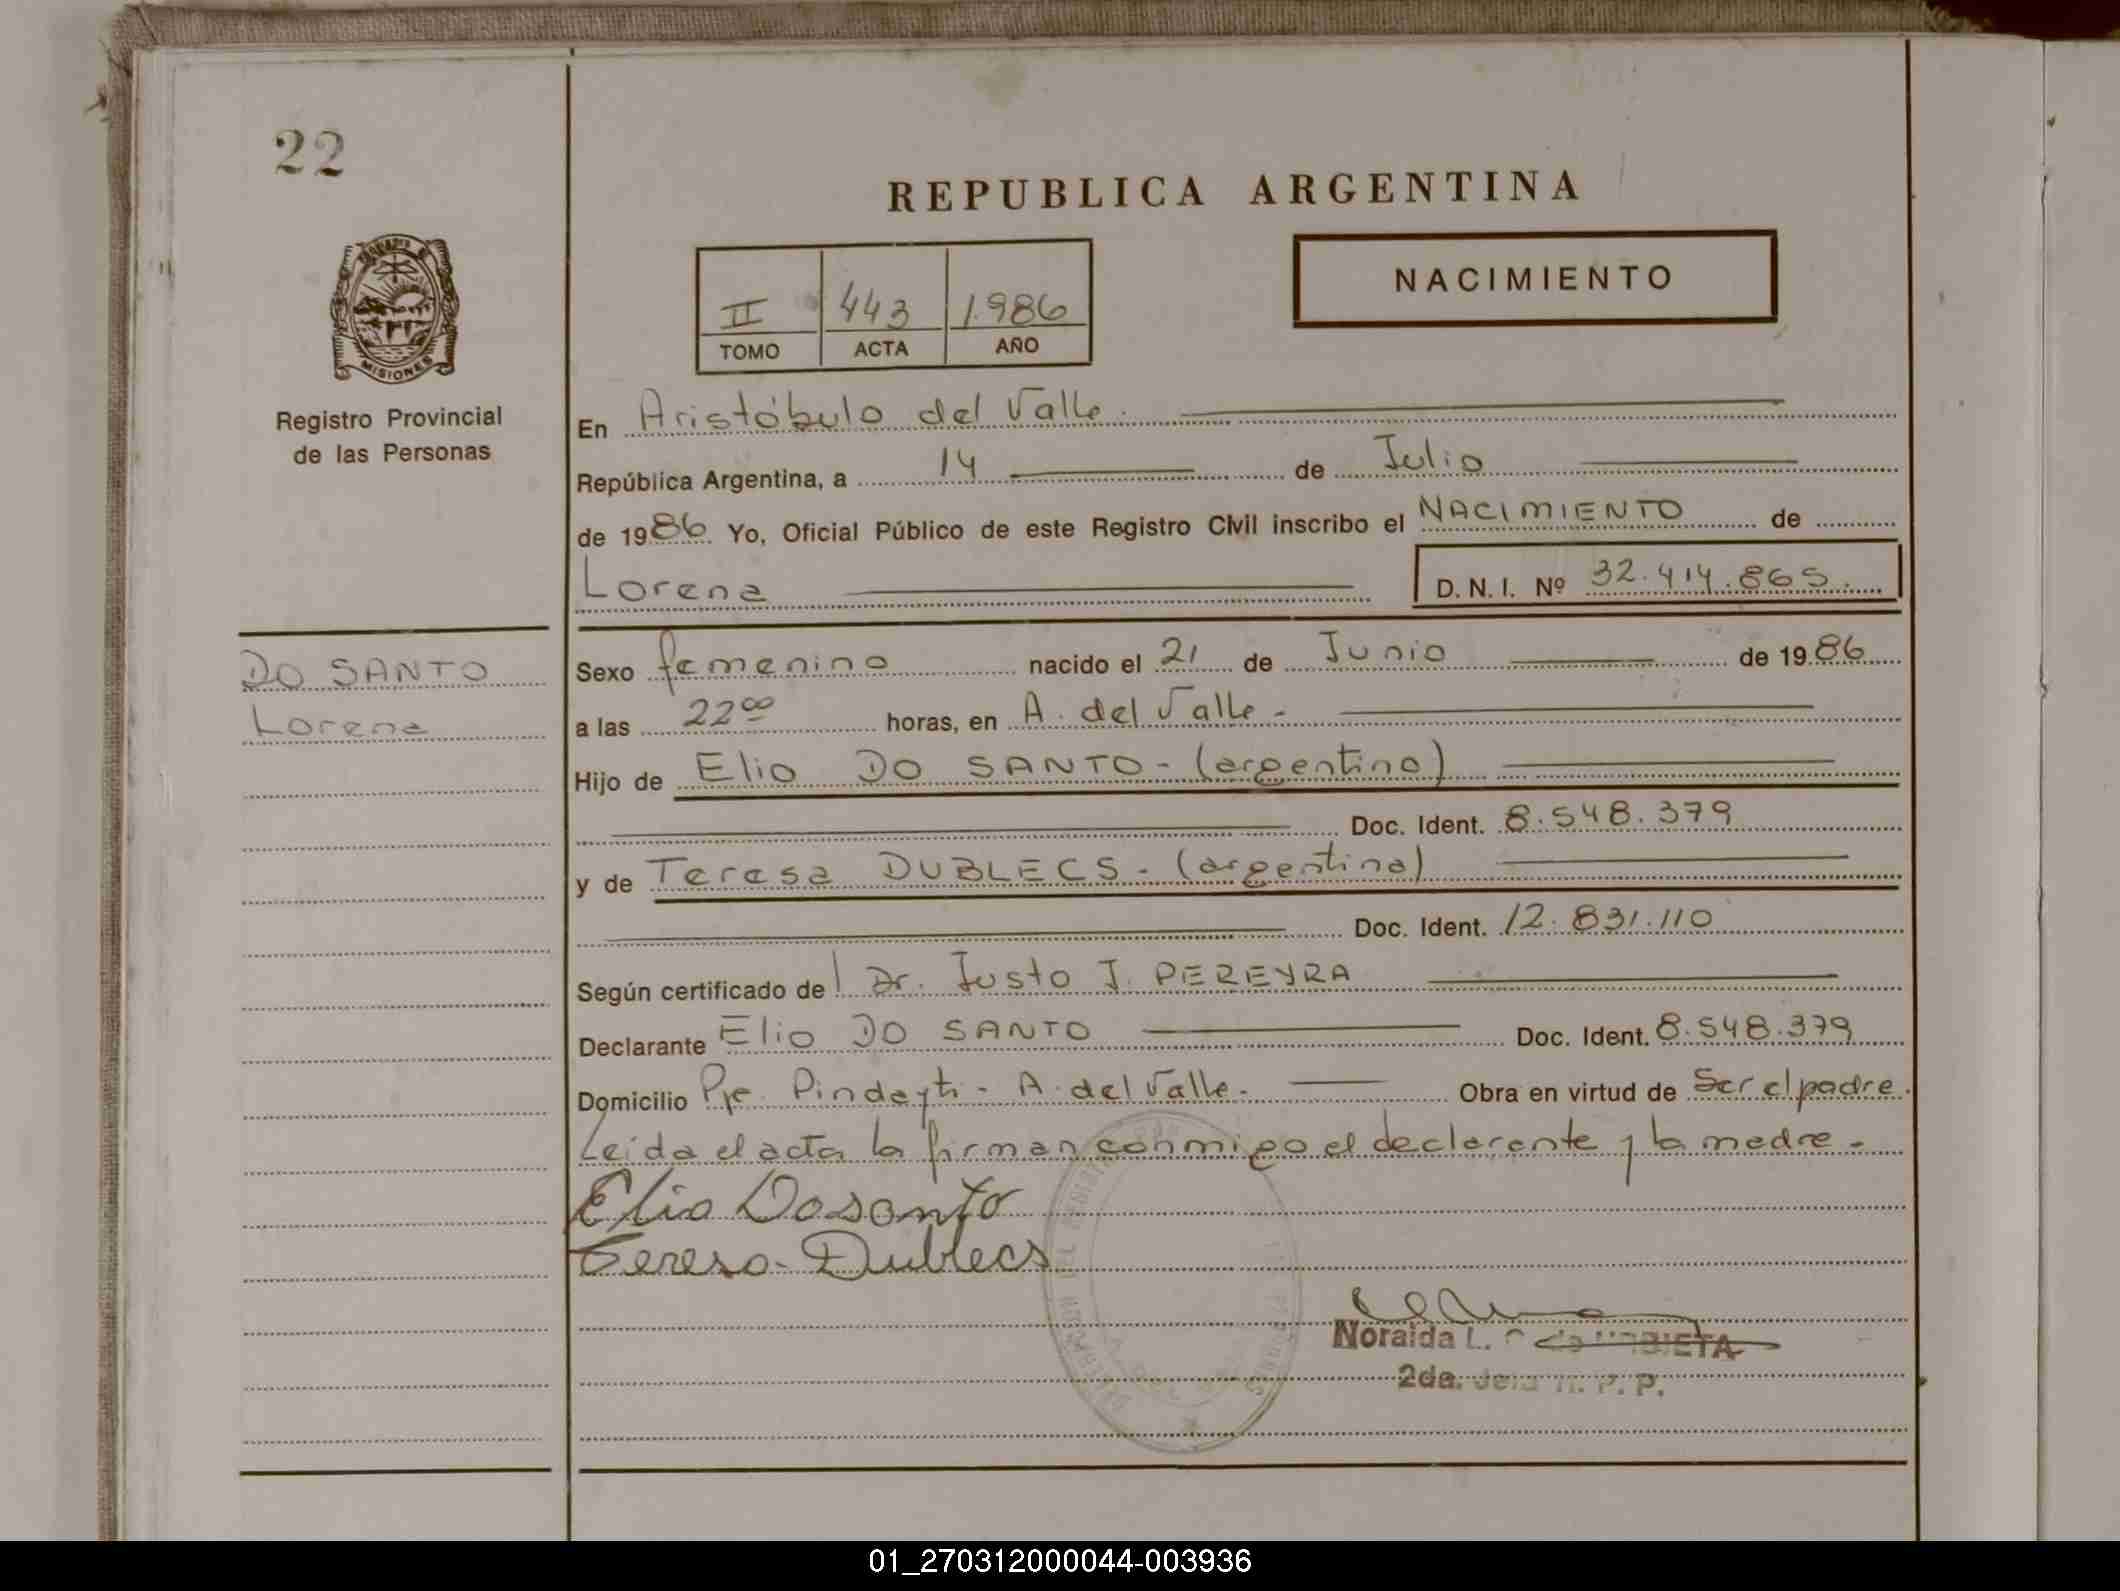 22
REPUBLICA ARGENTINA
NACIMIENTO
II 443 1.986
TOMO ACTA AÑO
MISIONES
Registro Provincial
de las Personas
En Aristóbulo del Valle.
República Argentina, a 14 de Julio
de 1986. Yo, Oficial Público de este Registro Civil inscribo el NACIMIENTO de
Lorena D. N. I. Nº 32.414.865.
DO SANTO
Lorena
Sexo femenino nacido el 21 de Junio de 1986
a las 22⁰⁰ horas, en A. del Valle -
Hijo de Elio DO SANTO - (argentino)
Doc. Ident. 8.548.379
y de Teresa DUBLECS - (argentina)
Doc. Ident. 12.831.110
Según certificado de Dr. Justo J. PEREYRA
Declarante Elio DO SANTO Doc. Ident. 8.548.379
Domicilio Pje. Pindayti - A. del Valle - Obra en virtud de Ser el padre.
Leida el acta la firman conmigo el declarante y la madre -
Elio Dosanto
Teresa Dublecs
Noralda L.
2da. Jefa R. P. P.
01_270312000044-003936